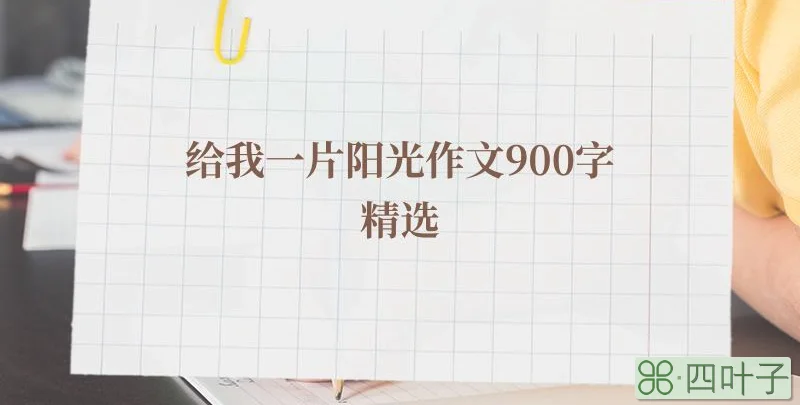 给我一片阳光作文900字
精选
四叶子